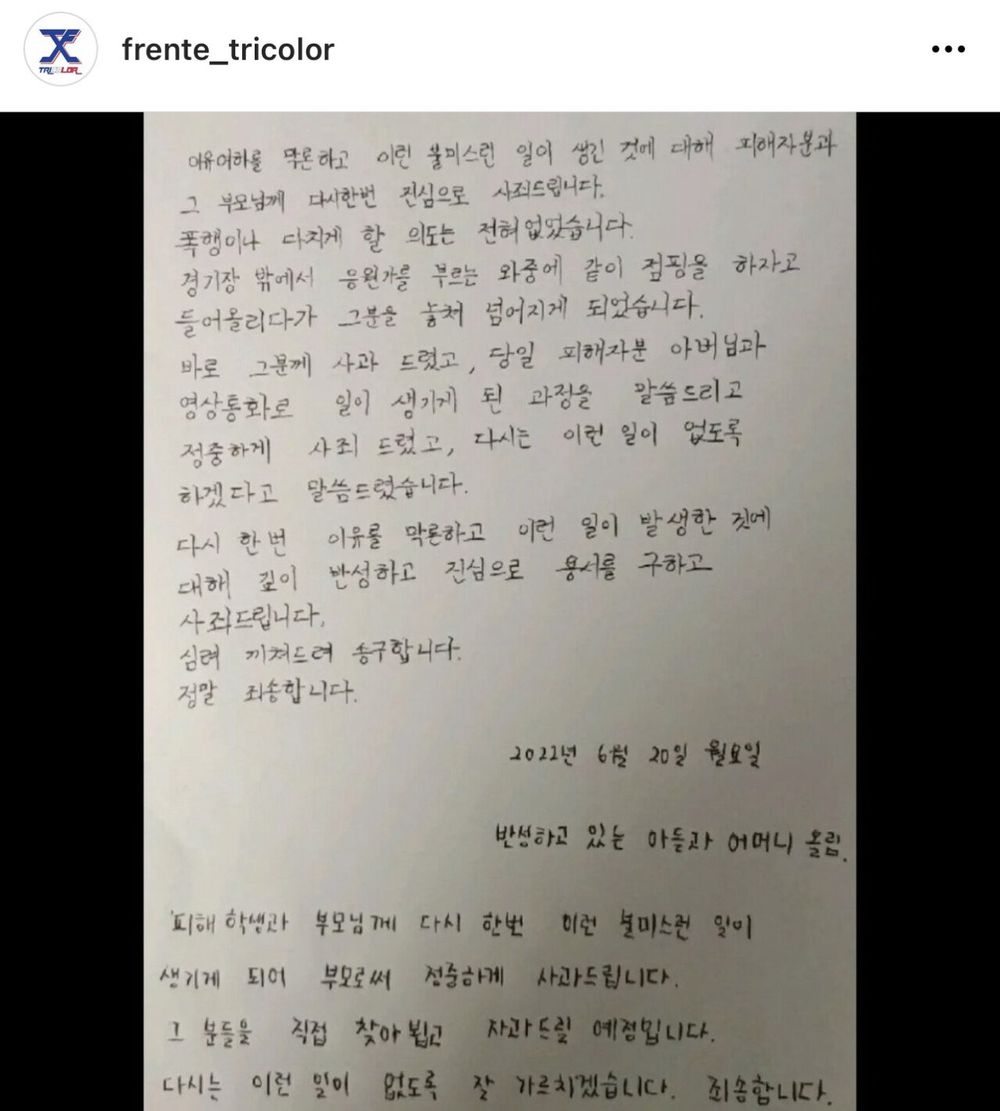 frente_tricolor
이유여하를 막론하고 이런 불미스런 일이 생긴 것에 대해 피해자분과
그 부모님께 다시한번 진심으로 사죄드립니다.
폭행이나 다치게 할 의도는 전혀 없었습니다.
경기장 밖에서 응원가를 부르는 와중에 같이 점핑을 하자고
들어올리다가 그분을 놓쳐 넘어지게 되었습니다.
바로 그분께 사과 드렸고, 당일 피해자분 아버님과
영상통화로 일이 생기게 된 과정을 말씀드리고
정중하게 사죄 드렸고, 다시는 이런 일이 없도록
하겠다고 말씀드렸습니다.
다시 한번 이유를 막론하고 이런 일이 발생한 것에
대해 깊이 반성하고 진심으로 용서를 구하고
사죄드립니다.
심려 끼쳐드려 송구합니다.
정말 죄송합니다.
2022년 6월 20일 월요일
반성하고 있는 아들과 어머니 올림.
피해 학생과 부모님께 다시 한번 이런 불미스런 일이
생기게 되어 부모로써 정중하게 사과드립니다.
그 분들을 직접 찾아뵙고 사과드릴 예정입니다.
다시는 이런 일이 없도록 잘 가르치겠습니다. 죄송합니다.